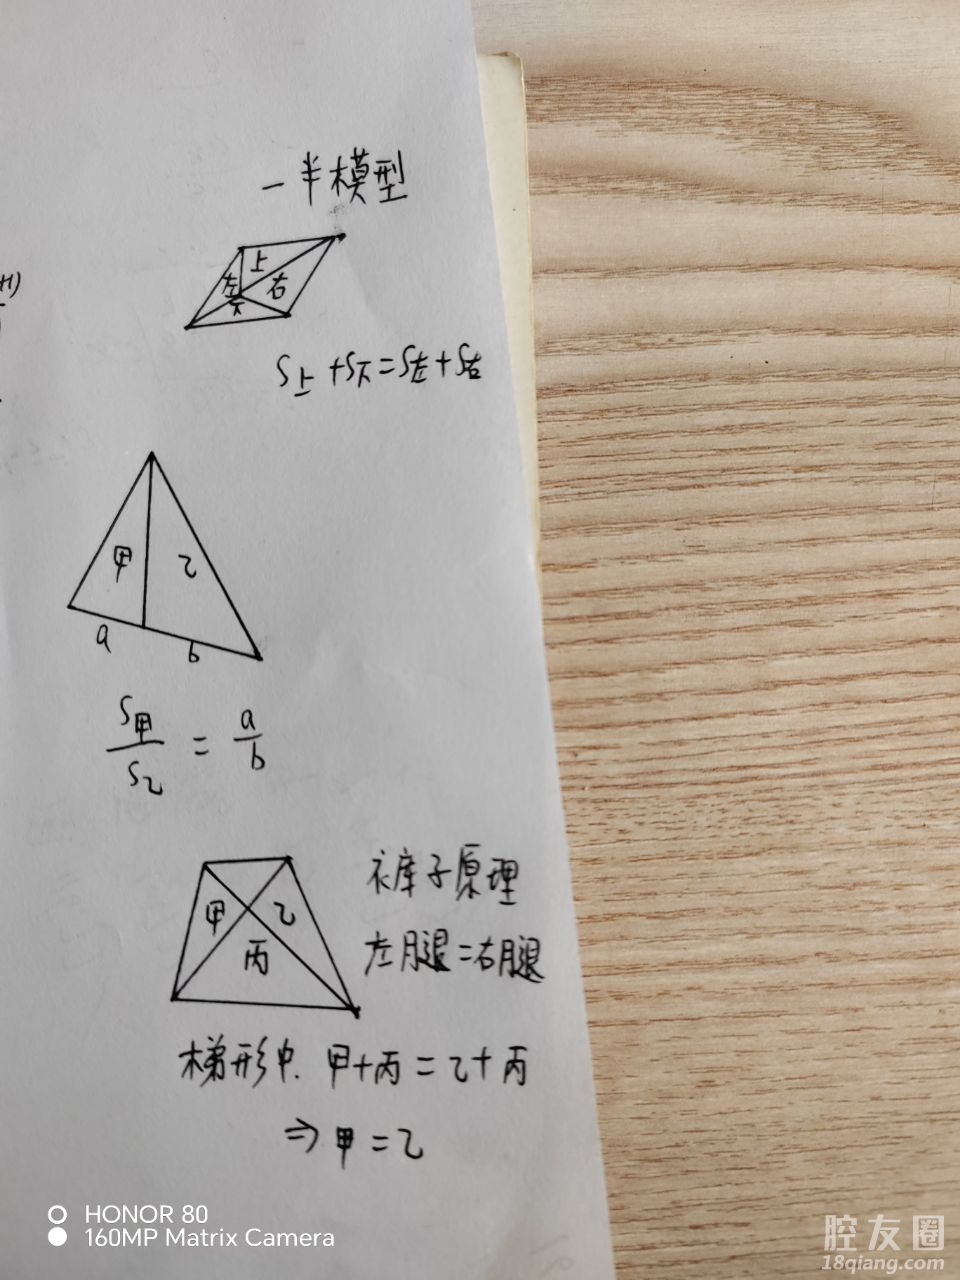 一半模型
上
左
右
下
S上+S下=S左+S右
甲
乙
a
b
S甲/S乙 = a/b
甲
乙
丙
衤库子原理
左月腿=右月腿
梯形中. 甲+丙=乙+丙
⇒甲=乙
HONOR 80
160MP Matrix Camera
腔友圈
18qiang.com